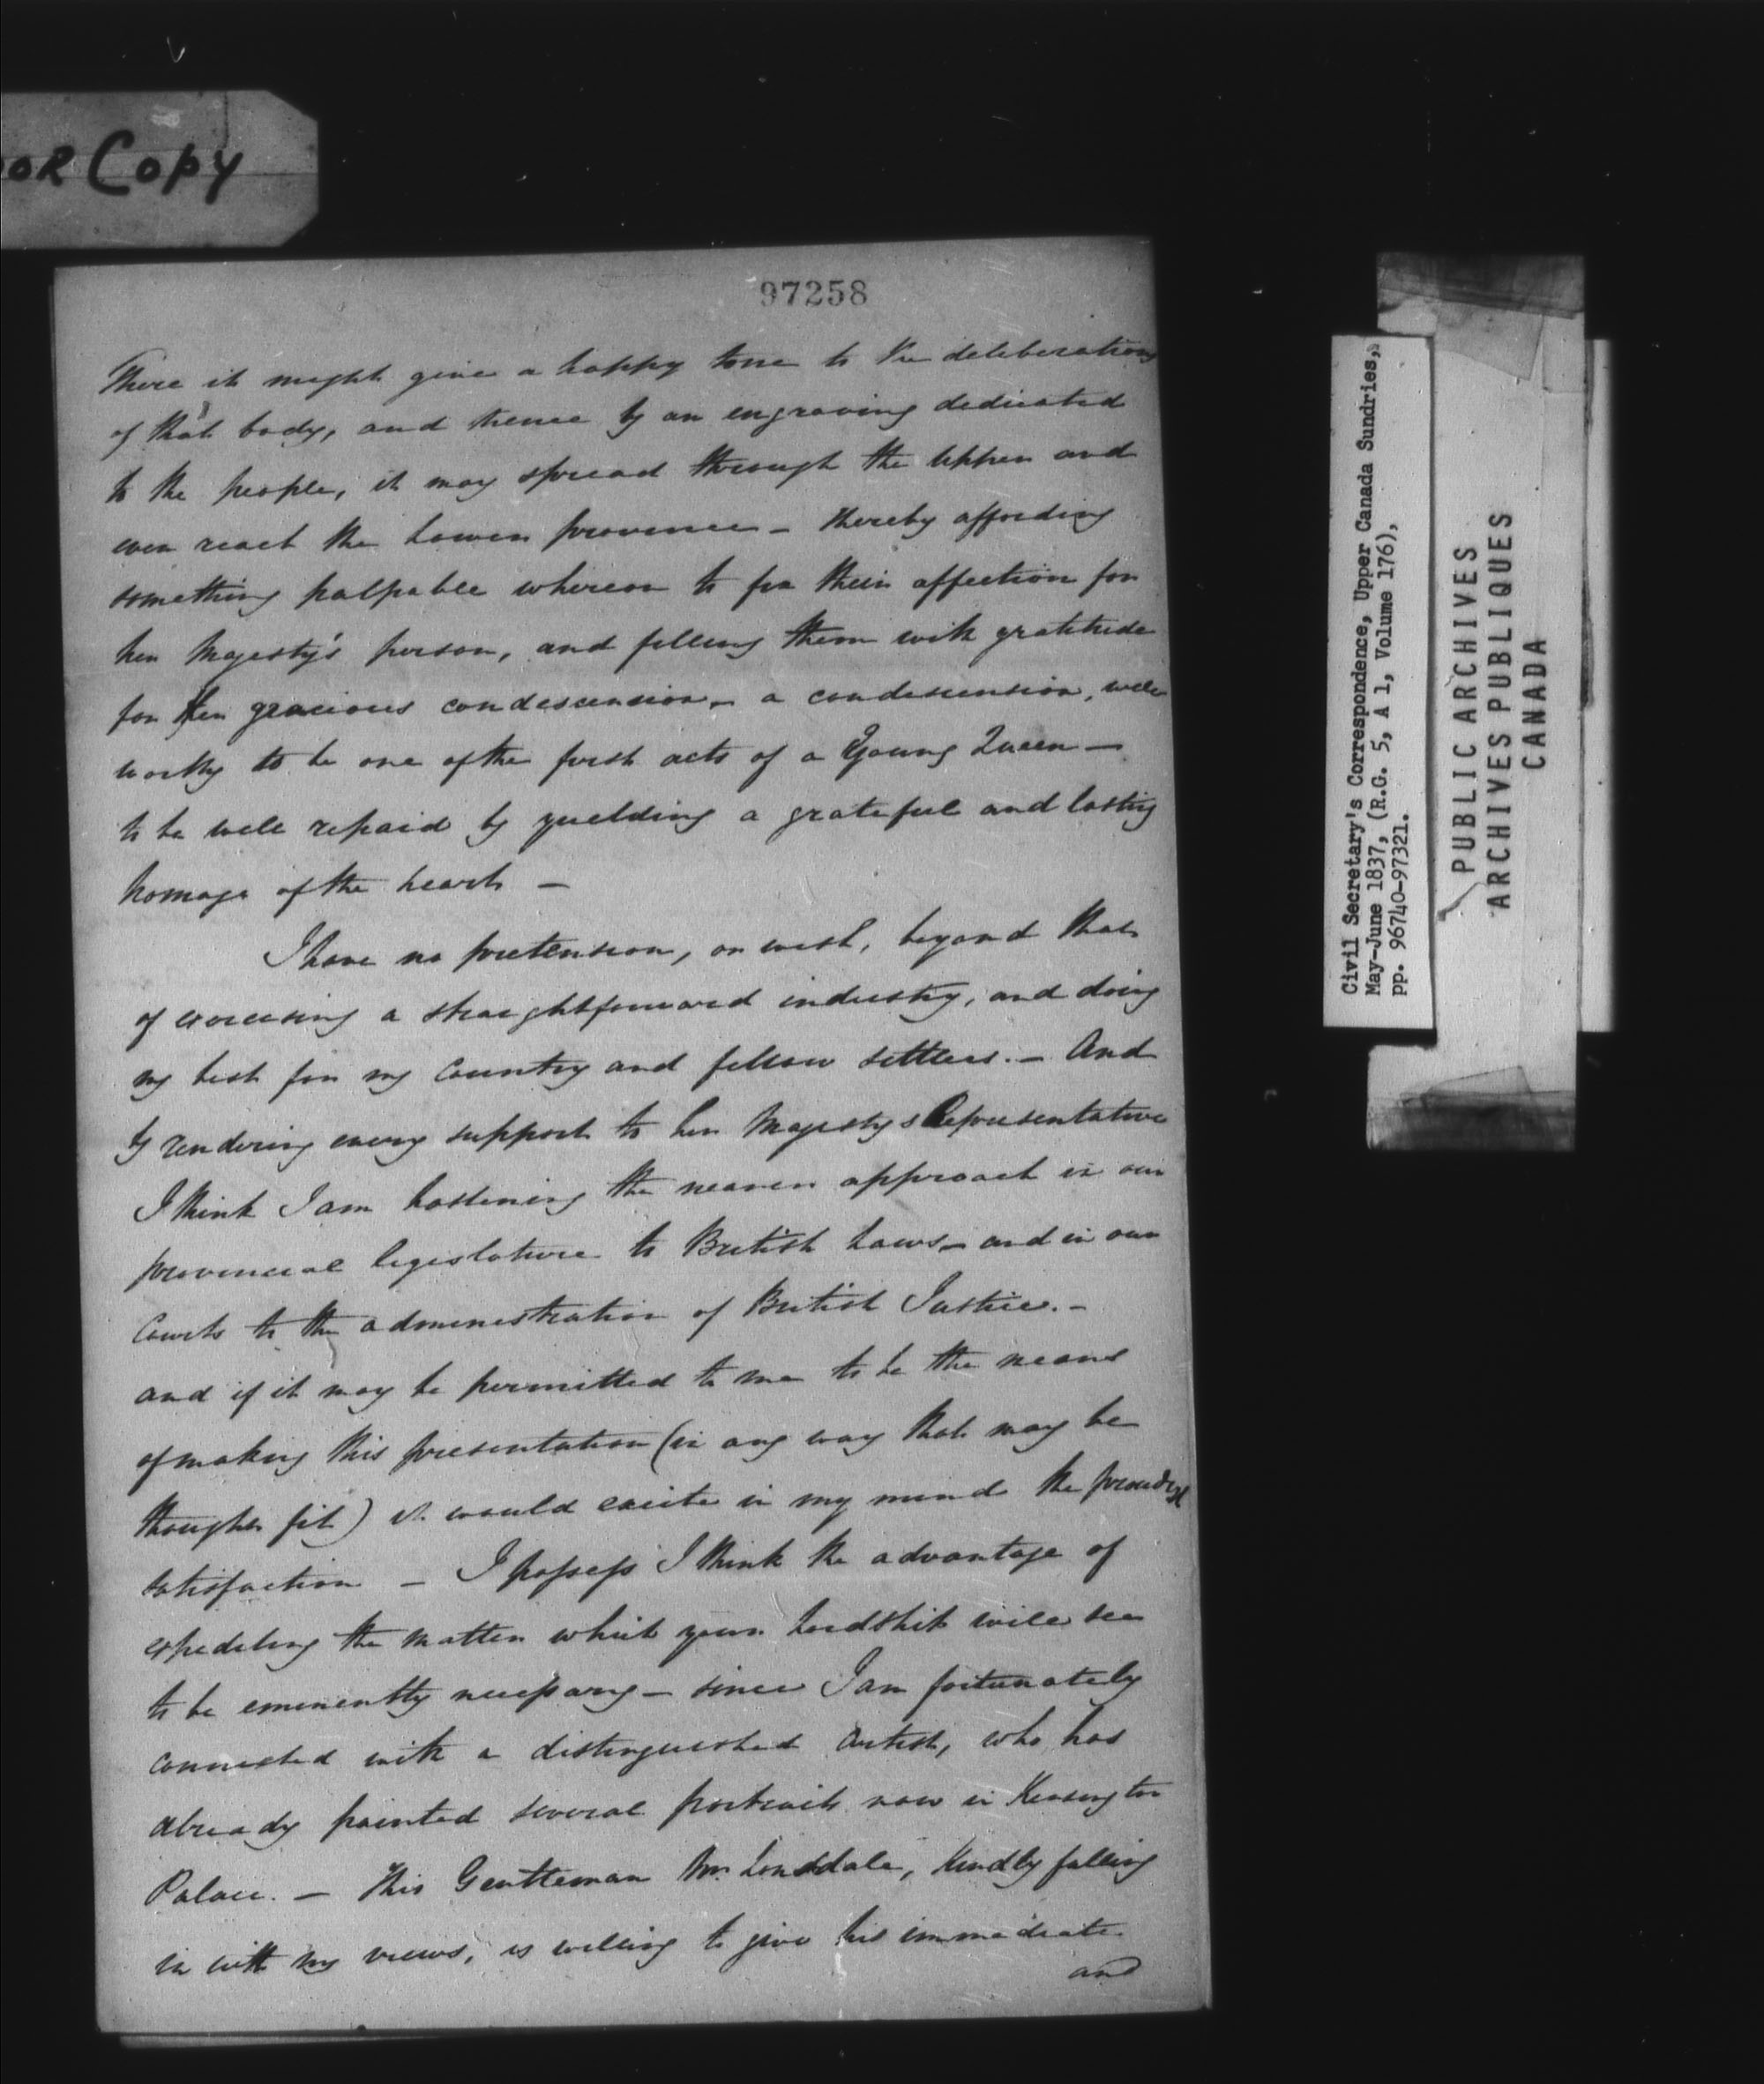 OR Copy
97258
There it might give a happy tone to the deliberations
of that body, and thence by an engraving dedicated
to the people, it may spread through the Upper and
even reach the Lower province - thereby affording
something palpable whereon to fix their affection for
her Majesty's person, and filling them with gratitude
for her gracious condescension - a condescension, well
worthy to be one of the first acts of a Young Queen -
to be well repaid by yielding a grateful and lasting
homage of the heart -
I have no pretension, or wish, beyond that
of exercising a straightforward industry, and doing
my best for my Country and fellow settlers. - And
by rendering every support to her Majestys Representative
I think I am hastening the nearer approach in our
provincial legislature to British Laws - and in our
Courts to the administration of British Justice. -
and if it may be permitted to me to be the means
of making this presentation (in any way that may be
thought fit) it would excite in my mind the proudest
satisfaction - I possess I think the advantage of
expediting the matter which your Lordship will see
to be eminently necessary - since I am fortunately
connected with a distinguished Artist, who has
already painted several portraits now in Kensington
Palace. - This Gentleman Mr. Lonsdale, kindly falling
in with my views, is willing to give his immediate
and
Civil Secretary's Correspondence, Upper Canada Sundries,
May-June 1837, (R.G. 5, A 1, Volume 176),
pp. 96740-97321.
PUBLIC ARCHIVES
ARCHIVES PUBLIQUES
CANADA